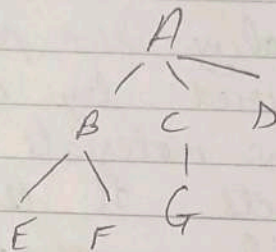 A
B C D
E F G